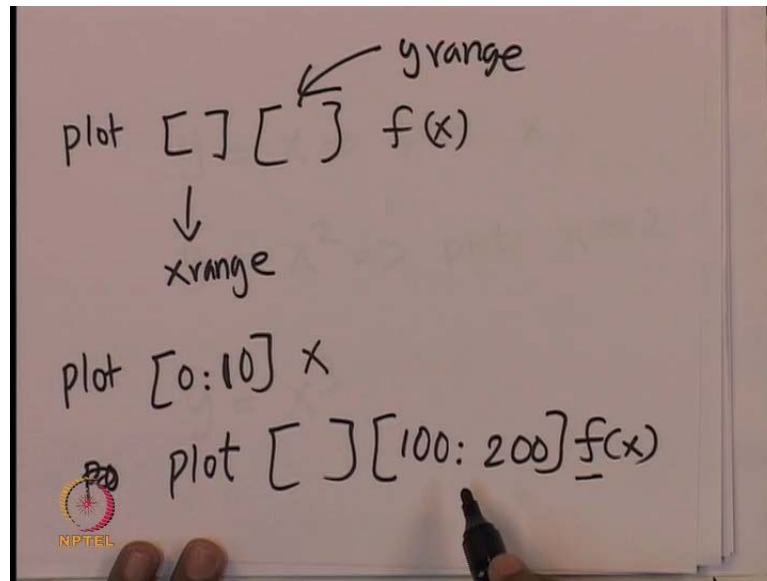 yrange
plot [ ] [ ] f(x)
xrange
plot [0:10] x
plot [ ] [100: 200] f(x)
NPTEL